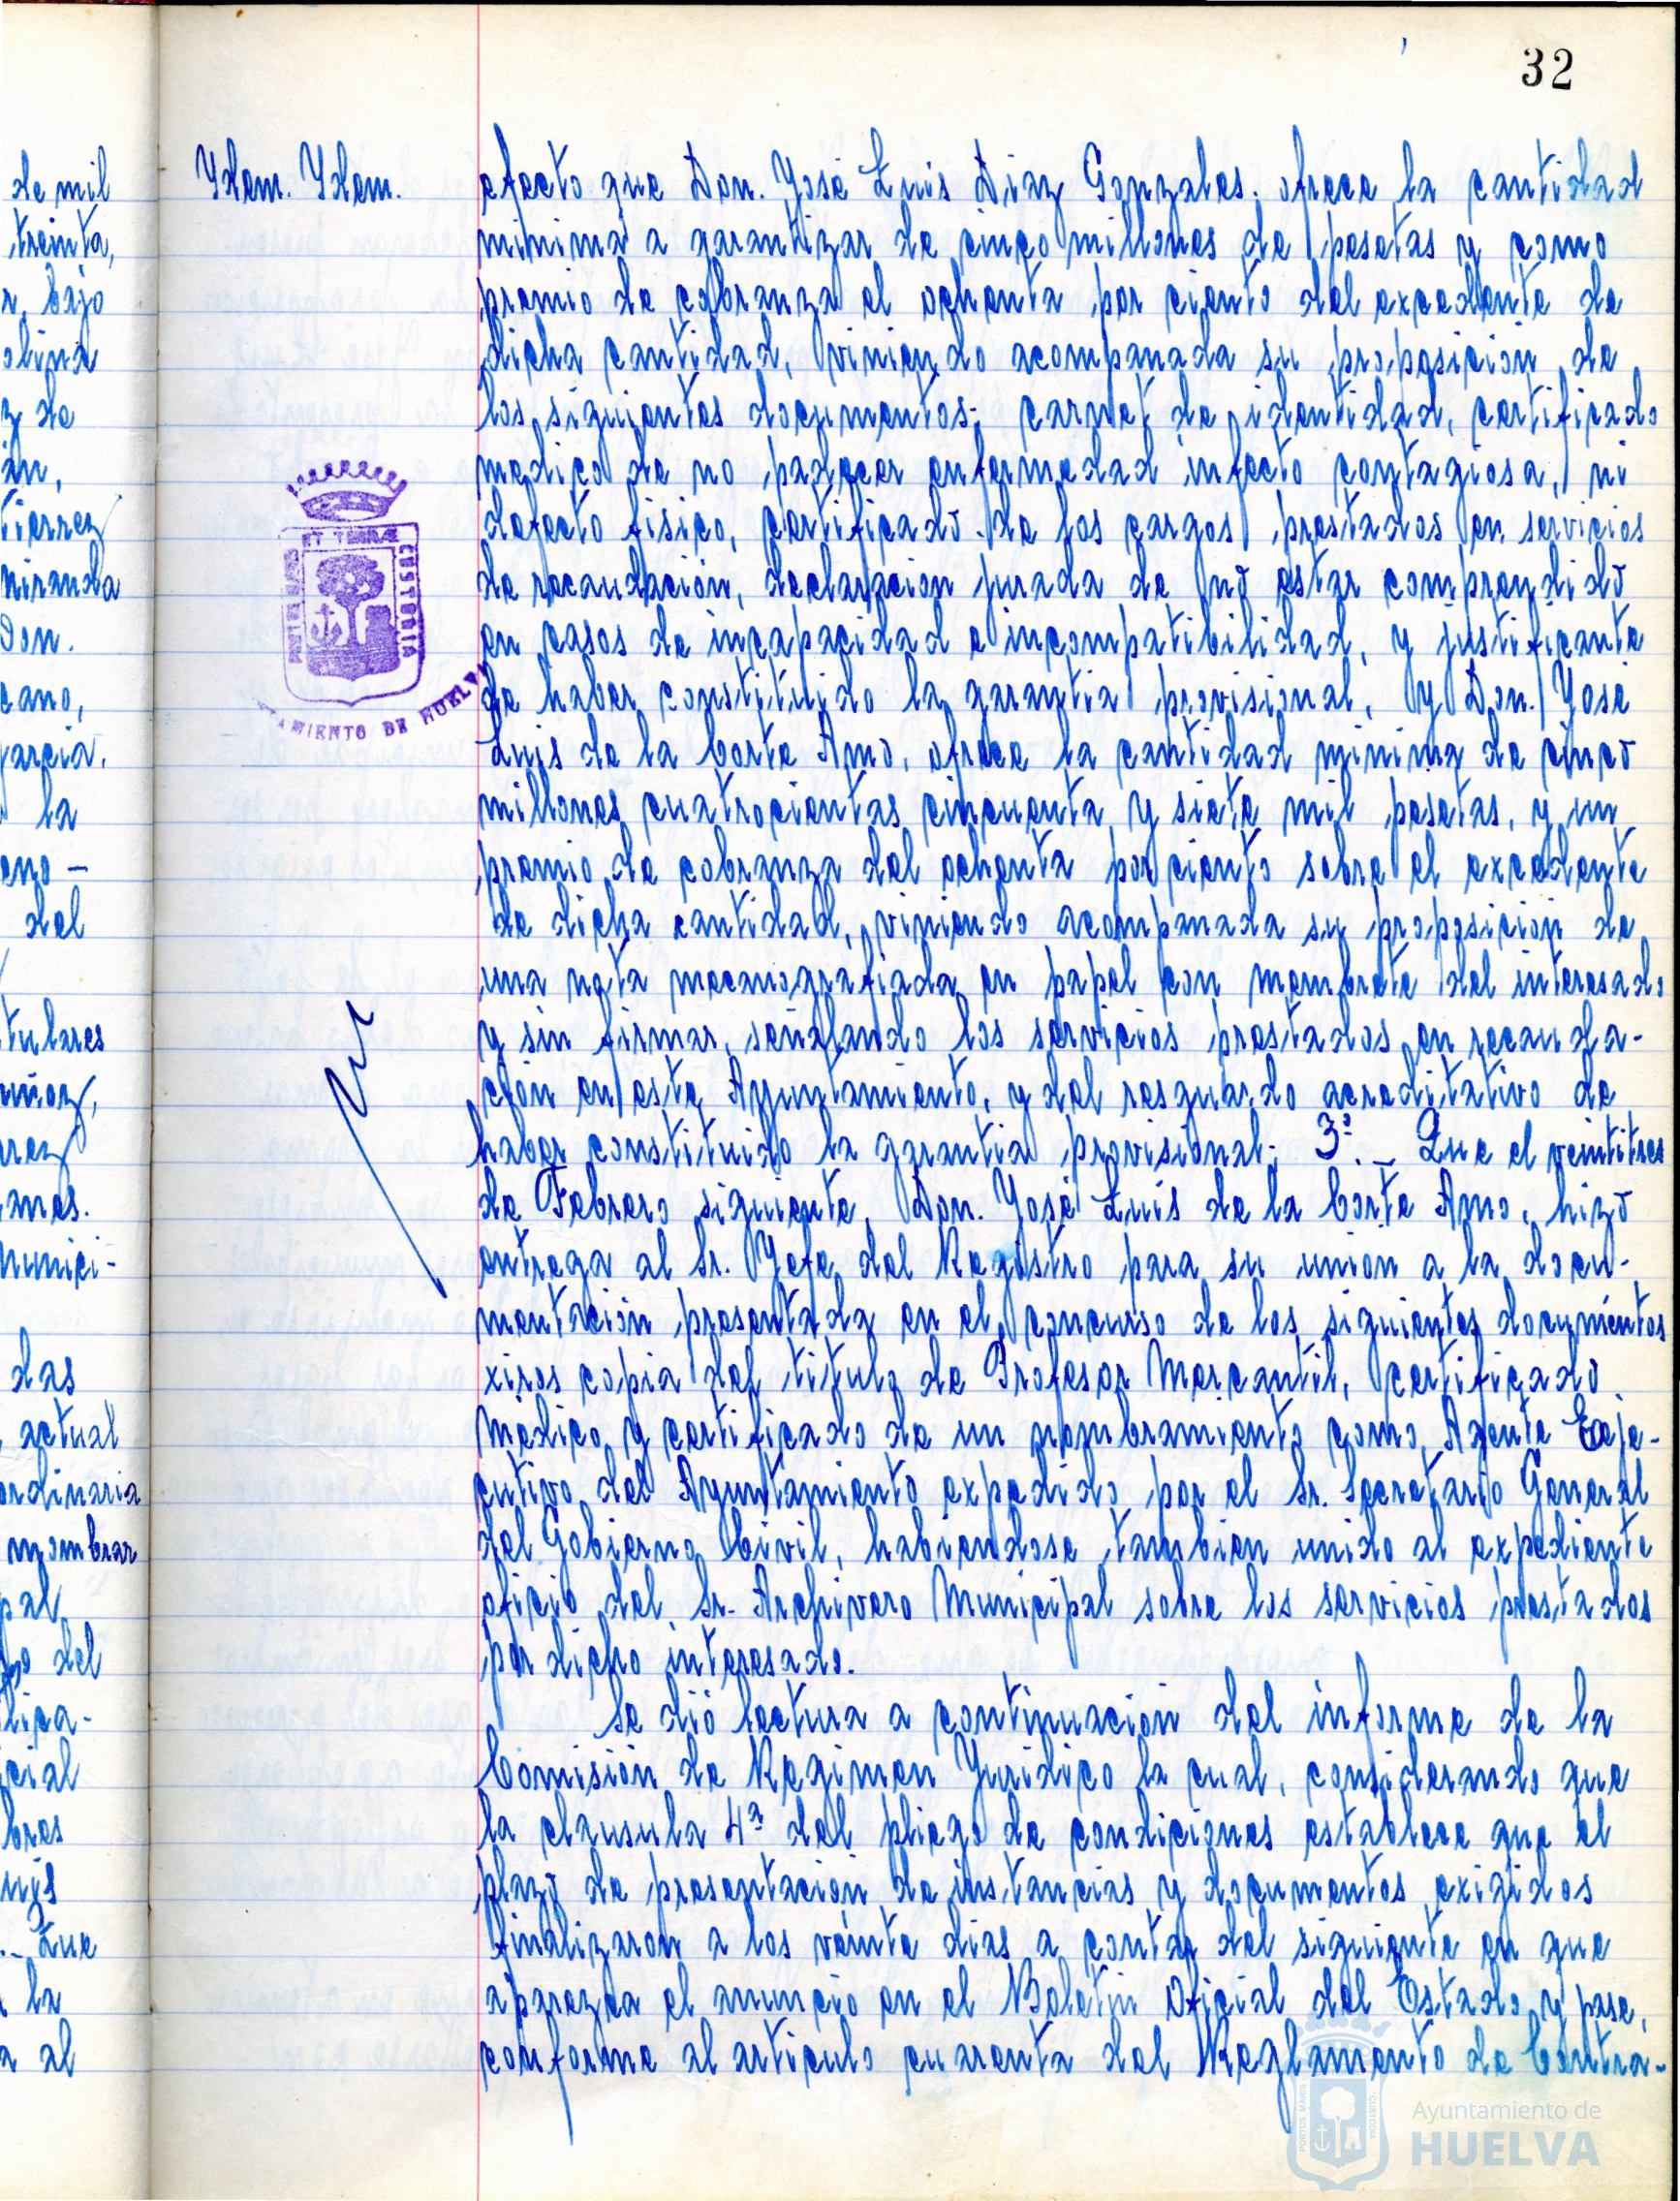 32
Ydem. Ydem.
efecto que Don. José Luis Diaz Gonzales. ofrece la cantidad
minima a garantizar de cinco millones de pesetas y como
premio de cobranza el ochenta por ciento del excedente de
dicha cantidad, viniendo acompanada su proposicion de
los siguientes documentos; carnet de identidad, certificado
medico de no padecer enfermedad infecto contagiosa, ni
defecto fisico, certificado de los cargos prestados en servicios
de recaudación, declaracion jurada de no estar comprendido
en casos de incapacidad e incompatibilidad, y justificante
de haber constituido la garantia provisional, y Don. José
Luis de la Corte Amo, ofrece la cantidad minima de cinco
millones cuatrocientas cincuenta y siete mil pesetas, y un
premio de cobranza del ochenta por ciento sobre el excedente
de dicha cantidad, viniendo acompanada su proposicion de
una nota mecanografiada en papel con membrete del interesado
y sin firmar, señalando los servicios prestados en recauda-
ción en este Ayuntamiento, y del resguardo acreditativo de
haber constituido la garantia provisional; 3º.- Que el veintitres
de Febrero siguiente, Don. José Luis de la Corte Amo, hizo
entrega al Sr. Jefe del Registro para su union a la docu-
mentación presentada en el concurso de los siguientes documentos
xiros copia del titulo de Profesor Mercantil, certificado
medico y certificado de un nombramiento como Agente Eje-
cutivo del Ayuntamiento expedido por el Sr. Secretario General
del Gobierno Civil, habiendose tambien unido al expediente
oficio del Sr. Archivero Municipal sobre los servicios prestados
por dicho interesado.
Se dió lectura a continuación del informe de la
Comisión de Regimen Juridico la cual, considerando que
la clausula 4ª del pliego de condiciones establece que el
plazo de presentacion de instancias y documentos exigidos
finalizaron a los veinte dias a contar del siguiente en que
aparezca el anuncio en el Boletin Oficial del Estado y pase,
conforme al articulo cuarenta del Reglamento de Contra-
AMIENTO DE HUELVA
CUSTODIA
de mil
treinta,
bajo
z de
Don.
cano,
garcia.
la
del
das
actual
ordinaria
nombrar
del
Que
la
al
Ayuntamiento de
HUELVA